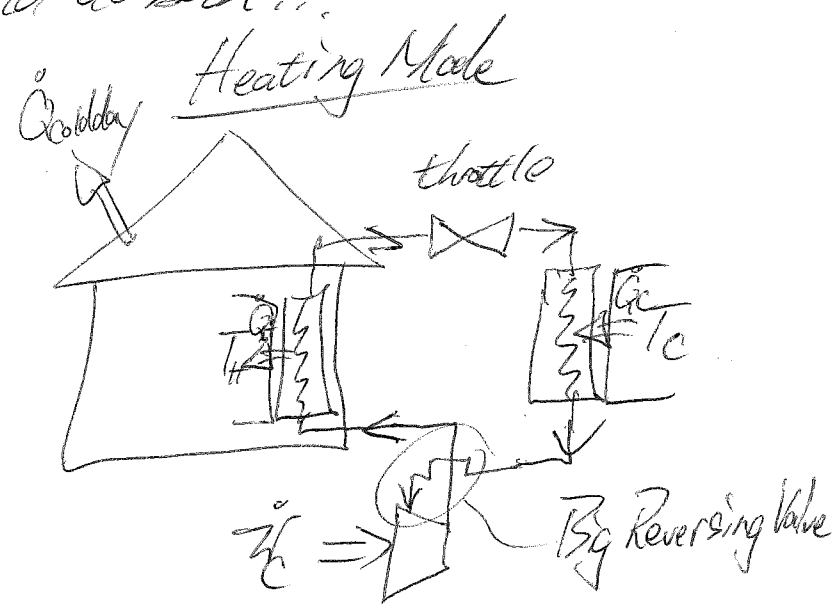 Heating Mode
Q̇coldday
throttle
Q̇
TH
Q̇c
Tc
Ẇc
Big Reversing Valve